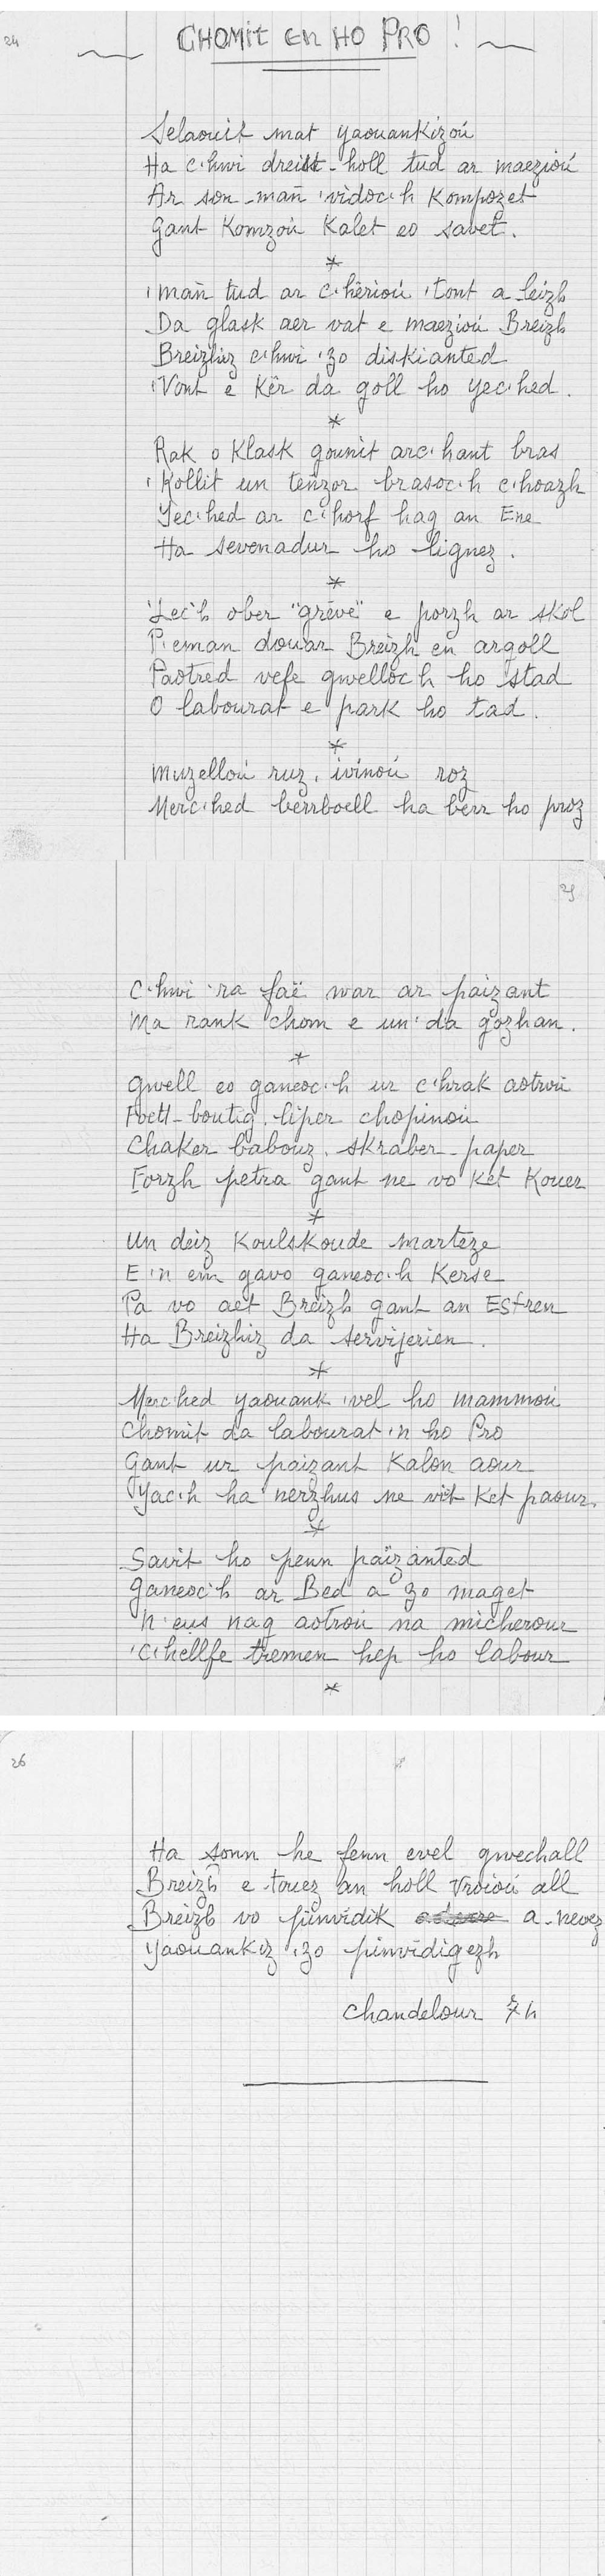 24
CHOMIT EN HO PRO !
Selaouit mat yaouankizoú
Ha c'hwi dreist-holl tud ar maezioú
Ar son-mañ 'vidoc'h Kompozet
Gant Komzoú Kalet eo savet.
*
'mañ tud ar c'hêrioú 'tont a leizh
Da glask aer vat e maezioú Breizh
Breizhiz c'hwi 'zo diskianted
'Vont e Kêr da goll ho yec'hed.
*
Rak o Klask gounit arc'hant bras
'Kollit un teñzor brasoc'h c'hoazh
Yec'hed ar c'horf hag an Ene
Ha sevenadur ho lignez.
*
'Lec'h ober "grève" e porzh ar skol
P'eman douar Breizh en argoll
Paotred vefe gwelloc'h ho stad
O labourat e park ho tad.
*
Muzelloú ruz, ivinoú roz
Merc'hed berrboell ha berr ho proz
25
C'hwi 'ra faë war ar paizant
Ma rank chom e un' da gozhan.
*
Gwell eo ganeoc'h ur c'hrak aotroú
Foett-boutig, liper chopinoú
Chaker babouz, skraber-paper
Forzh petra gant ne vo Ket Kouer
*
Un deiz Koulskoude marteze
E'n em gavo ganeoc'h Kerse
Pa vo aet Breizh gant an Estren
Ha Breizhiz da servijerien.
*
Merc'hed yaouank 'vel ho mammoú
Chomit da labourat 'n ho Pro
Gant ur paizant Kalon aour
Yac'h ha nerzhus ne vit Ket paour.
*
Savit ho penn païzanted
Ganeoc'h ar Bed a zo maget
N'eus nag aotroú na micherour
'C'hellfe tremen hep ho labour
*
26
Ha sonn he fenn evel gwechall
Breizh e touez an holl vroioú all
Breizh vo pinvidik a-nevez
Yaouankiz 'zo pinvidigezh
Chandelour